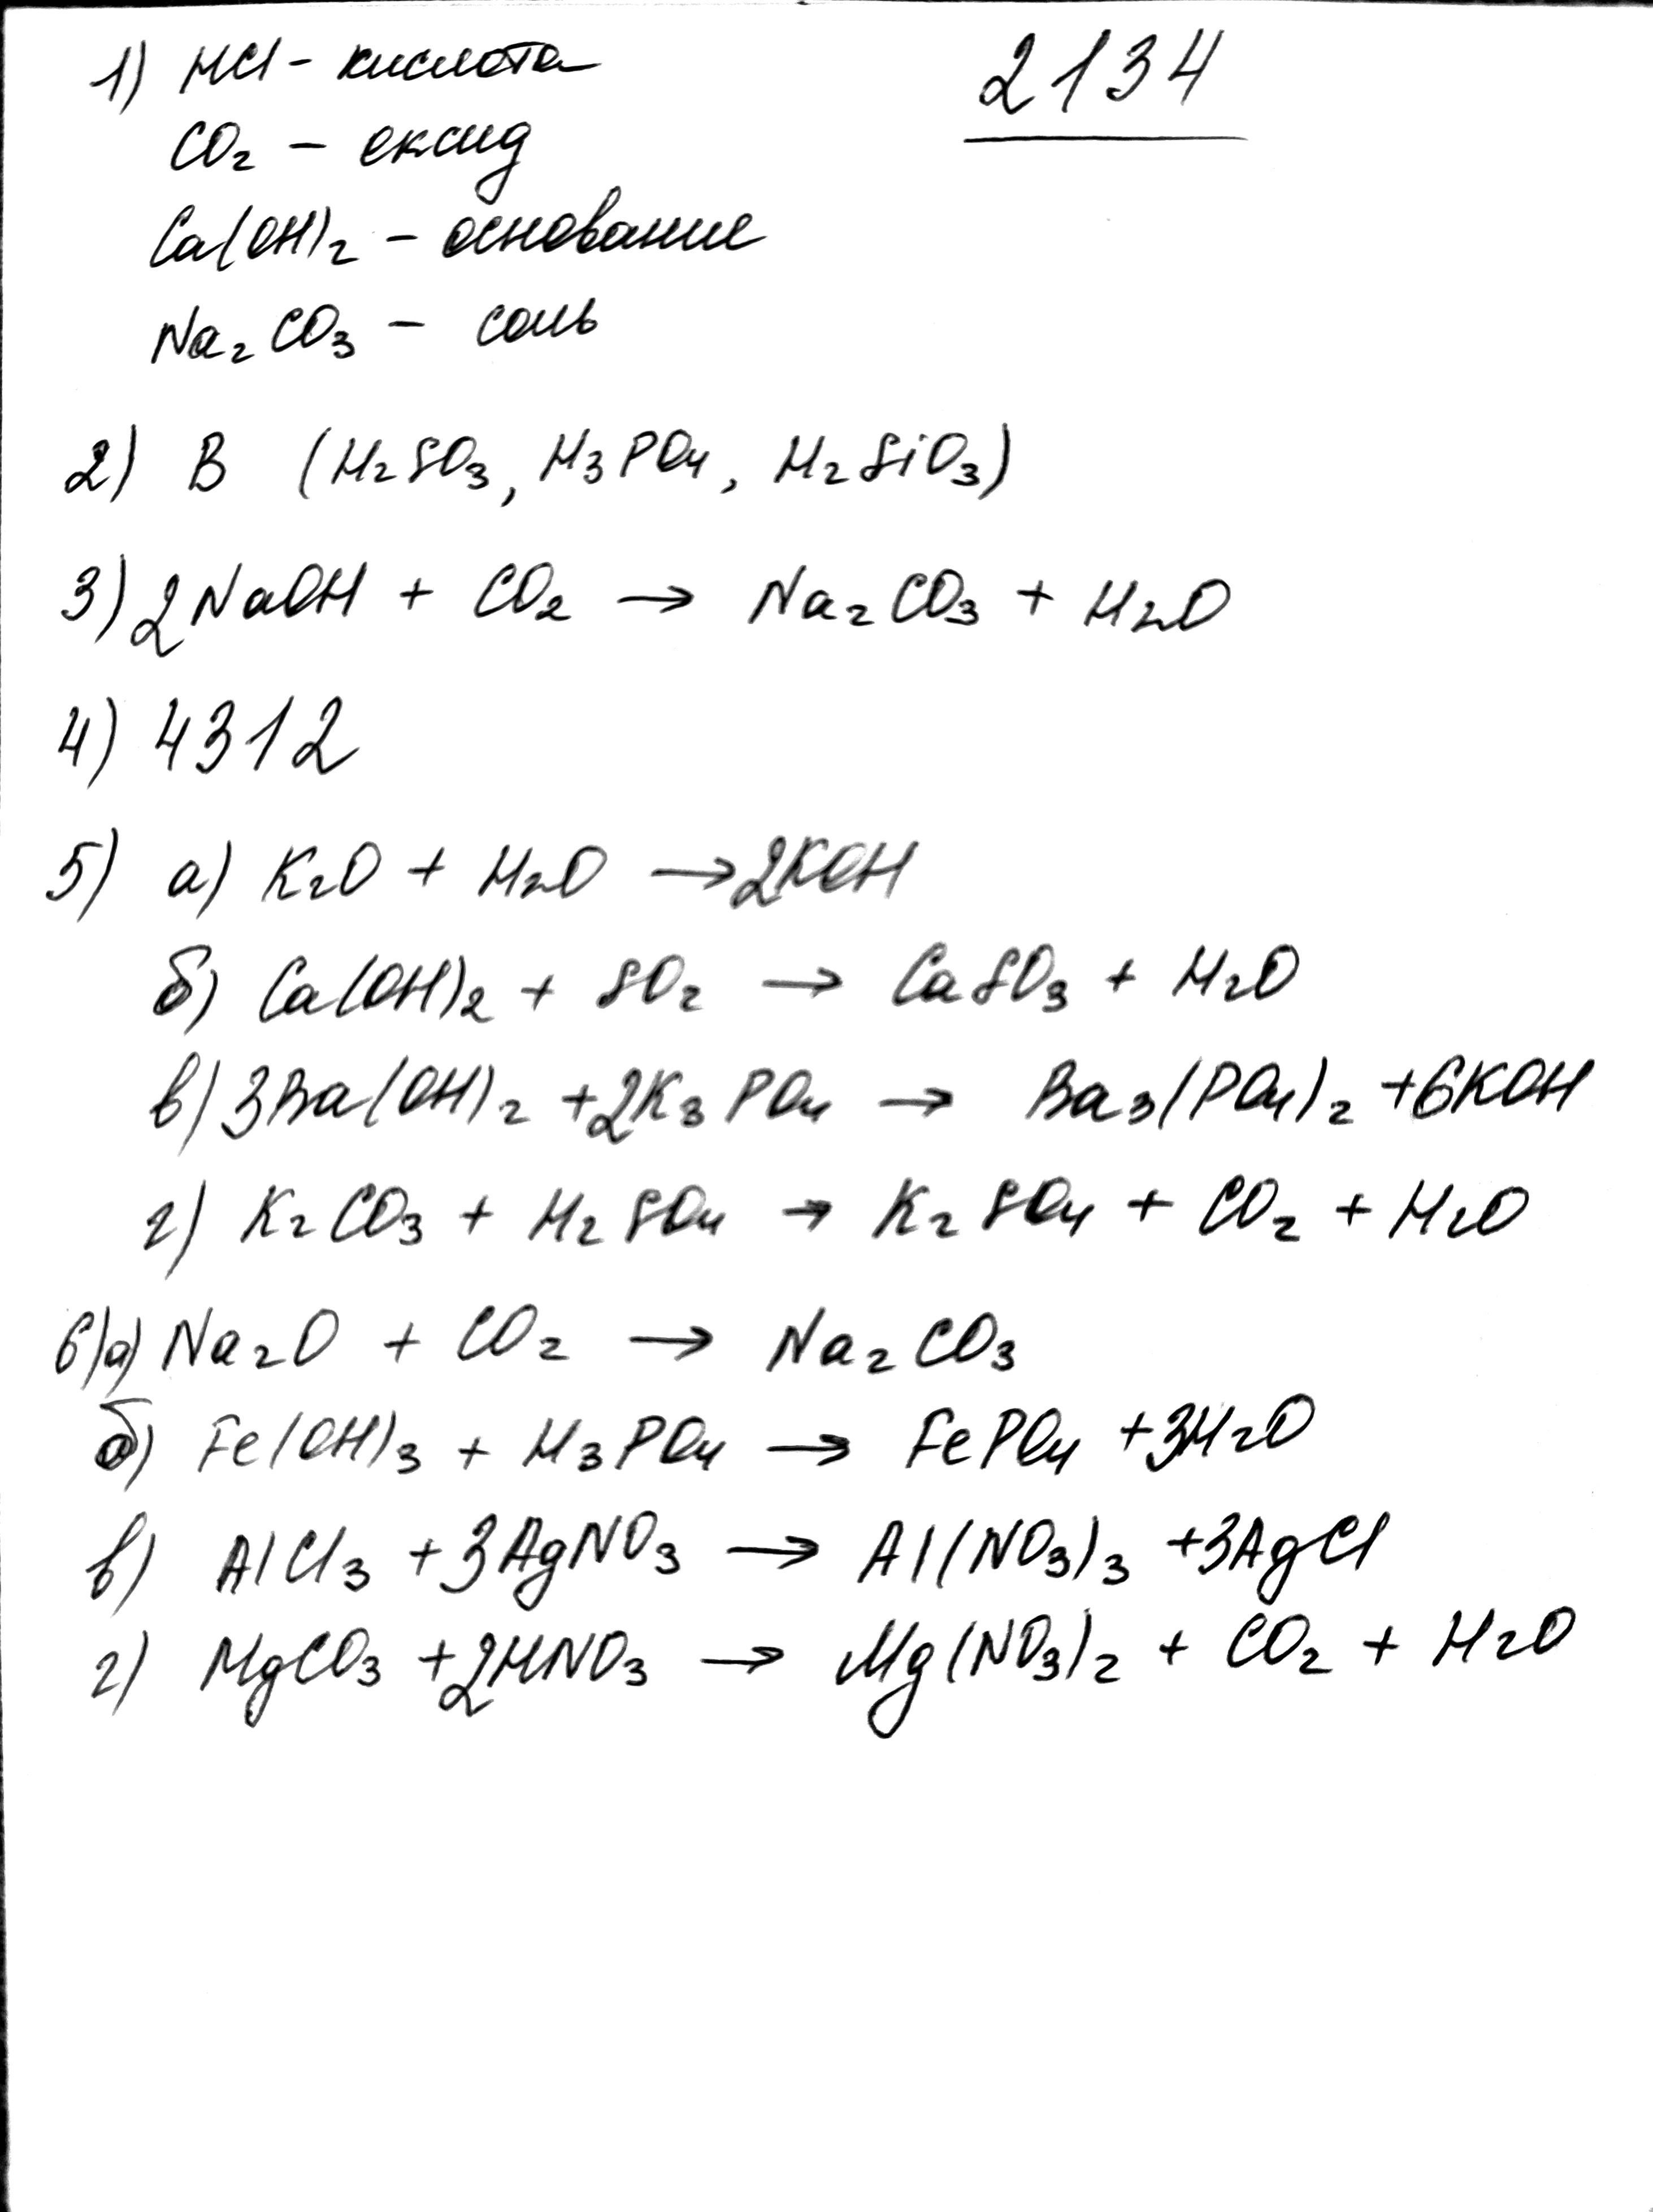 1) HCl - кислота
2134
CO₂ - оксид
Ca(OH)₂ - основание
Na₂CO₃ - соль
2) В (H₂SO₃, H₃PO₄, H₂SiO₃)
3) 2NaOH + CO₂ → Na₂CO₃ + H₂O
4) 4312
5) а) K₂O + H₂O → 2KOH
б) Ca(OH)₂ + SO₂ → CaSO₃ + H₂O
в) 3Ba(OH)₂ + 2K₃PO₄ → Ba₃(PO₄)₂ + 6KOH
г) K₂CO₃ + H₂SO₄ → K₂SO₄ + CO₂ + H₂O
6) а) Na₂O + CO₂ → Na₂CO₃
б) Fe(OH)₃ + H₃PO₄ → FePO₄ + 3H₂O
в) AlCl₃ + 3AgNO₃ → Al(NO₃)₃ + 3AgCl
г) MgCO₃ + 2HNO₃ → Mg(NO₃)₂ + CO₂ + H₂O